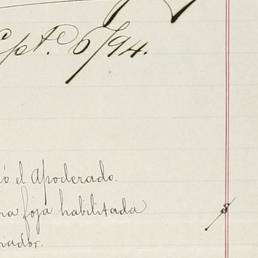 Spt.e 6/94.
ó el Apoderado.
na foja habilitada
iador.